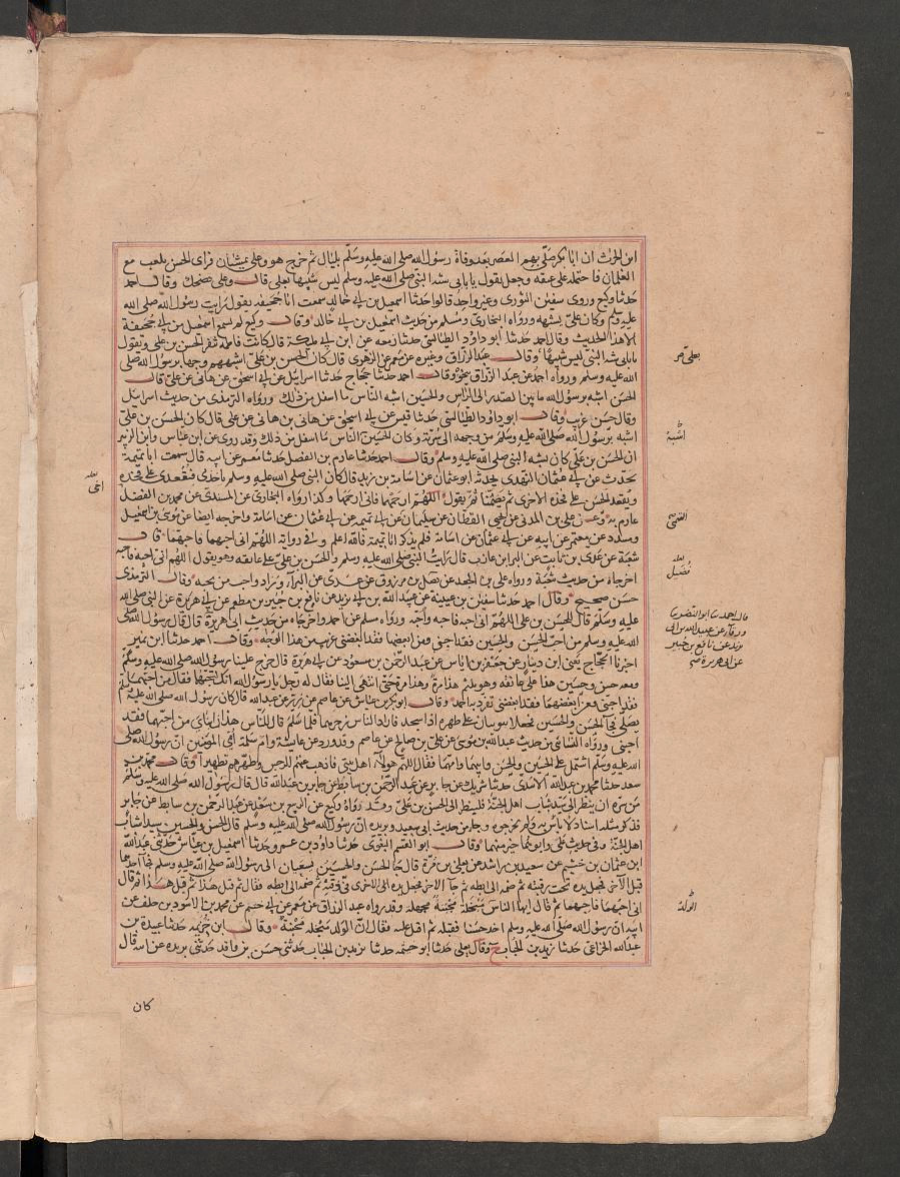 ابن الحارث ان ابا بكر صلى بهم العصر بعد وفاة رسول الله صلى الله عليه وسلم بليال ثم خرج هو وعلي يمشيان فراى الحسن يلعب مع
الغلمان فاحتمله على عنقه وجعل يقول يا بابي شبه النبي صلى الله عليه وسلم ليس شبيها بعلي قال وعلي يضحك وقال احمد
حدثنا وكيع وروى سفين الثوري وغير واحد قالوا حدثنا اسمعيل بن ابي خالد سمعت ابا جحيفه يقول رايت رسول الله صلى الله
عليه وسلم وكان علي يشبهه ورواه البخاري ومسلم من حديث اسمعيل بن ابي خالد وقال وكيع لم يسمع اسمعيل من ابي جحيفة
الا هذا الحديث وقال احمد حدثنا ابو داود الطيالسي حدثنا زمعه عن ابن ابي مليكة قال كانت فاطمة تنقز الحسن بن علي وتقول
بابي شبه النبي ليس شبيها وقال عبد الرزاق وغيره عن معمر عن الزهري قال كان الحسن بن علي اشبههم وجها برسول الله صلى
الله عليه وسلم ورواه احمد عن عبد الرزاق بنحوه وقال احمد حدثنا حجاج حدثنا اسرائيل عن ابي اسحق عن هاني عن علي قال
الحسن اشبه برسول الله ما بين الصدر الى الراس والحسين اشبه الناس ما اسفل من ذلك ورواه الترمذي من حديث اسرائيل
وقال حسن غريب وقال ابو داود الطيالسي حدثنا قيس عن ابي اسحق عن هاني بن هاني عن علي قال كان الحسن بن علي
اشبه برسول الله صلى الله عليه وسلم من وجهه الى سرته وكان الحسين الناس ما اسفل من ذلك وقد روي عن ابن عباس وابن الزبير
ان الحسن بن علي كان يشبه النبي صلى الله عليه وسلم وقال احمد حدثنا عارم بن الفضل حدثنا معمر عن ابيه قال سمعت ابا تميمة
يحدث عن ابي عثمان النهدي يحدثه ابو عثمان عن اسامة بن زيد قال كان النبي صلى الله عليه وسلم ياخذني فيقعدني على فخذه
ويقعد الحسن على فخذه الاخرى ثم يضمنا ثم يقول اللهم ارحمهما فاني ارحمهما وكذا رواه البخاري عن المسندي عن محمد بن الفضل
عارم به وعن علي بن المديني عن يحيى القطان عن سليمان عن ابي تميمه عن ابي عثمان عن اسامة واخرجه ايضا عن موسى بن اسمعيل
ومسدد عن معتمر عن ابيه عن ابي عثمان عن اسامة فلم يذكر ابا تميمة فالله اعلم وفي رواية اللهم اني احبهما فاحبهما قال
شعبة عن عدي بن ثابت عن البرا بن عازب قال رايت النبي صلى الله عليه وسلم والحسن بن علي على عاتقه وهو يقول اللهم اني احبه فاحبه
اخرجاه من حديث شعبة ورواه علي بن الجعد عن فضيل بن مرزوق عن عدي عن البراء وزاد واحب من يحبه وقال الترمذي
حسن صحيح وقال احمد حدثنا سفين بن عيينة عن عبيد الله بن ابي يزيد عن نافع بن جبير بن مطعم عن ابي هريرة عن النبي صلى الله
عليه وسلم قال للحسن بن علي اللهم اني احبه فاحبه واحب من يحبه ورواه مسلم عن احمد واخرجاه من حديث ابي هريرة قال قال رسول الله صلى
الله عليه وسلم من احب الحسن والحسين فقد احبني ومن ابغضهما فقد ابغضني غريب من هذا الوجه وقال احمد حدثنا ابن نمير
اخبرنا الحجاج يعني ابن دينار عن جعفر بن اياس عن عبد الرحمن بن مسعود عن ابي هريرة قال خرج علينا رسول الله صلى الله عليه وسلم
ومعه حسن وحسين هذا على عاتقه وهو يلثم هذا مرة وهذا مرة حتى انتهى الينا فقال له رجل يا رسول الله انك لتحبهما فقال من احبهما
فقد احبني ومن ابغضهما فقد ابغضني تفرد به احمد وقال ابو بكر بن عياش عن عاصم عن زر عن عبد الله قال كان رسول الله صلى الله عليه وسلم
يصلي فجا الحسن والحسين فجعلا يتوثبان على ظهره اذا سجد فاراد الناس زجرهما فلما سلم قال للناس هذان ابناي من احبهما فقد
احبني ورواه النسائي من حديث عبيد الله بن موسى عن علي بن صالح عن عاصم وقد ورد عن عايشة وام سلمة امي المومنين ان رسول الله صلى
الله عليه وسلم اشتمل على الحسن والحسين وابيهما وامهما فقال اللهم هولاء اهل بيتي فاذهب عنهم الرجس وطهرهم تطهيرا وقال محمد بن
سعد حدثنا محمد بن عبد الله الاسدي حدثنا شريك عن جابر عن عبد الرحمن بن سابط عن جابر بن عبد الله قال قال رسول الله صلى الله عليه وسلم
من سره ان ينظر الى سيد شباب اهل الجنة فلينظر الى الحسن بن علي وقد رواه وكيع عن الربيع بن سعد عن عبد الرحمن بن سابط عن جابر
فذكر مثله اسناده لا باس به ولم يخرجوه وجاء من حديث ابي سعيد وبريده ان رسول الله صلى الله عليه وسلم قال الحسن والحسين سيدا شباب
اهل الجنة وفي حديث علي وابوهما خير منهما وقال ابو القسم البغوي حدثنا داود بن عمرو حدثنا اسمعيل بن عياش حدثني عبد الله
ابن عثمان بن خثيم عن سعيد بن راشد عن يعلى بن مرة قال جا الحسن والحسين يسعيان الى رسول الله صلى الله عليه وسلم فجا احدهما
قبل الاخر فجعل يده تحت رقبته ثم ضمه الى ابطه ثم جا الاخر فجعل يده الى الاخرى في رقبته ثم ضمه الى ابطه فقال ثم قبل هذا ثم قبل هذا ثم قال
اني احبهما فاحبهما ثم قال ايها الناس مبخلة مجبنة مجهلة وقد رواه عبد الرزاق عن معمر عن ابن خثيم عن محمد بن الاسود بن خلف عن
ابيه ان رسول الله صلى الله عليه وسلم اخذ حسنا فقبله ثم اقبل عليه فقال ان الولد مبخلة مجبنة وقال ابن خزيمه حدثنا عبدة بن
عبد الله الخزاعي حدثنا زيد بن الحباب ح وقال ابو يعلى حدثنا ابو خيثمه حدثنا زيد بن الحباب حدثني حسين بن واقد حدثني بريده عن ابيه قال
كان
اشبه
فضيل
قال احمد حدثنا ابو النضر حدثنا
ورقاء عن عبيد الله بن ابي
يزيد عن نافع بن جبير
عن ابي هريرة
الولد